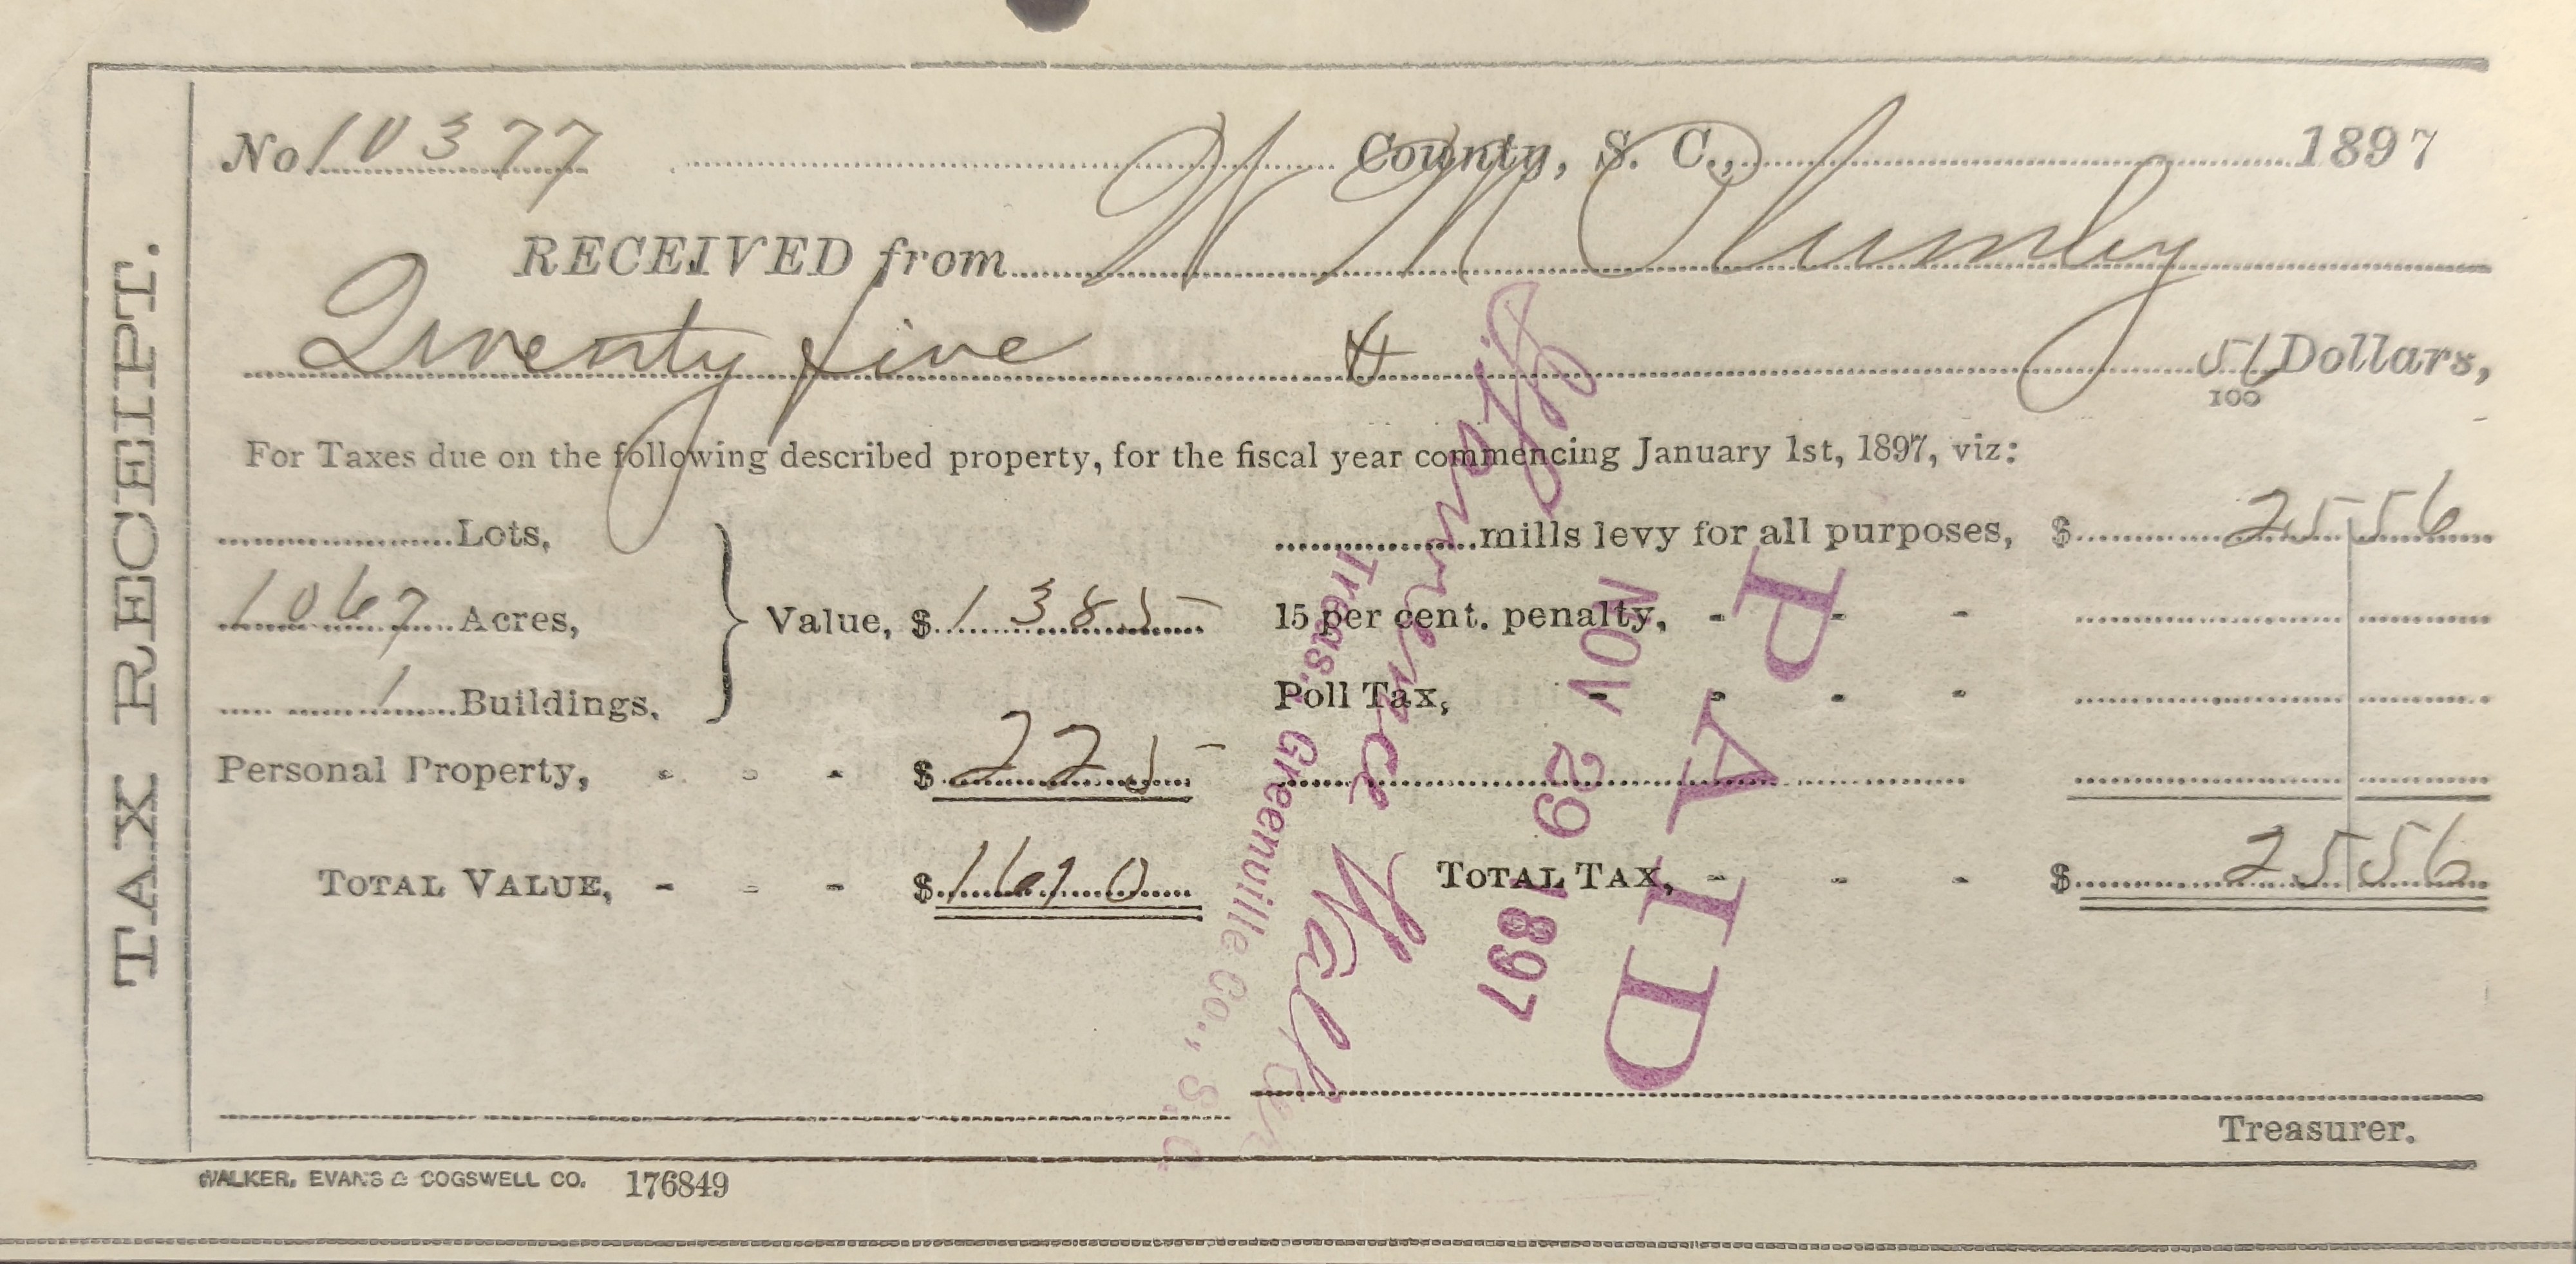 TAX RECEIPT.
No 10377 County, S. C., 1897
RECEIVED from W M Plumly
Twenty five & 56/100 Dollars,
For Taxes due on the following described property, for the fiscal year commencing January 1st, 1897, viz:
Lots,
1067 Acres,
1 Buildings,
Value, $ 1385
Personal Property, - - - $ 225
TOTAL VALUE, - - - $ 1610
mills levy for all purposes, $ 25 56
15 per cent. penalty, - - -
Poll Tax, - - - -
TOTAL TAX, - - - $ 25 56
Treasurer.
PAID
NOV 29 1897
Lawrence Walker
Treas., Greenville Co., S. C.
WALKER, EVANS & COGSWELL CO. 176849